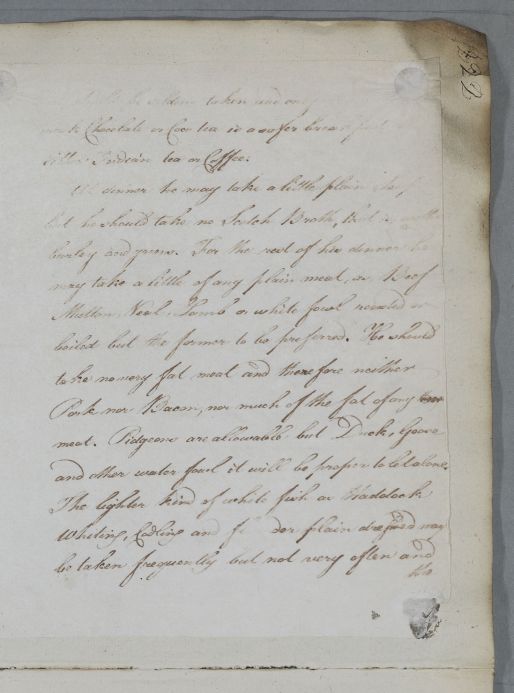 322
be seldom taken and only
Chocolate or Cocoa tea is a safer breakfast
Indian tea or Coffee.
At dinner he may take a little plain
but he should take no Scotch Broth, that is with
barley and greens. For the rest of his dinner he
may take a little of any plain meat, as Beef
Mutton Veal Lamb or white fowl roasted or
boiled but the former to be preferred. He should
take no very fat meat and therefore neither
Pork nor Bacon, nor much of the fat of any
meat. Pidgeons are allowable but Duck, Goose
and other water fowl it will be proper to let alone.
The lighter kind of white fish as Haddock
Whiting, Codling and der plain dressed may
be taken frequently but not very often and
the